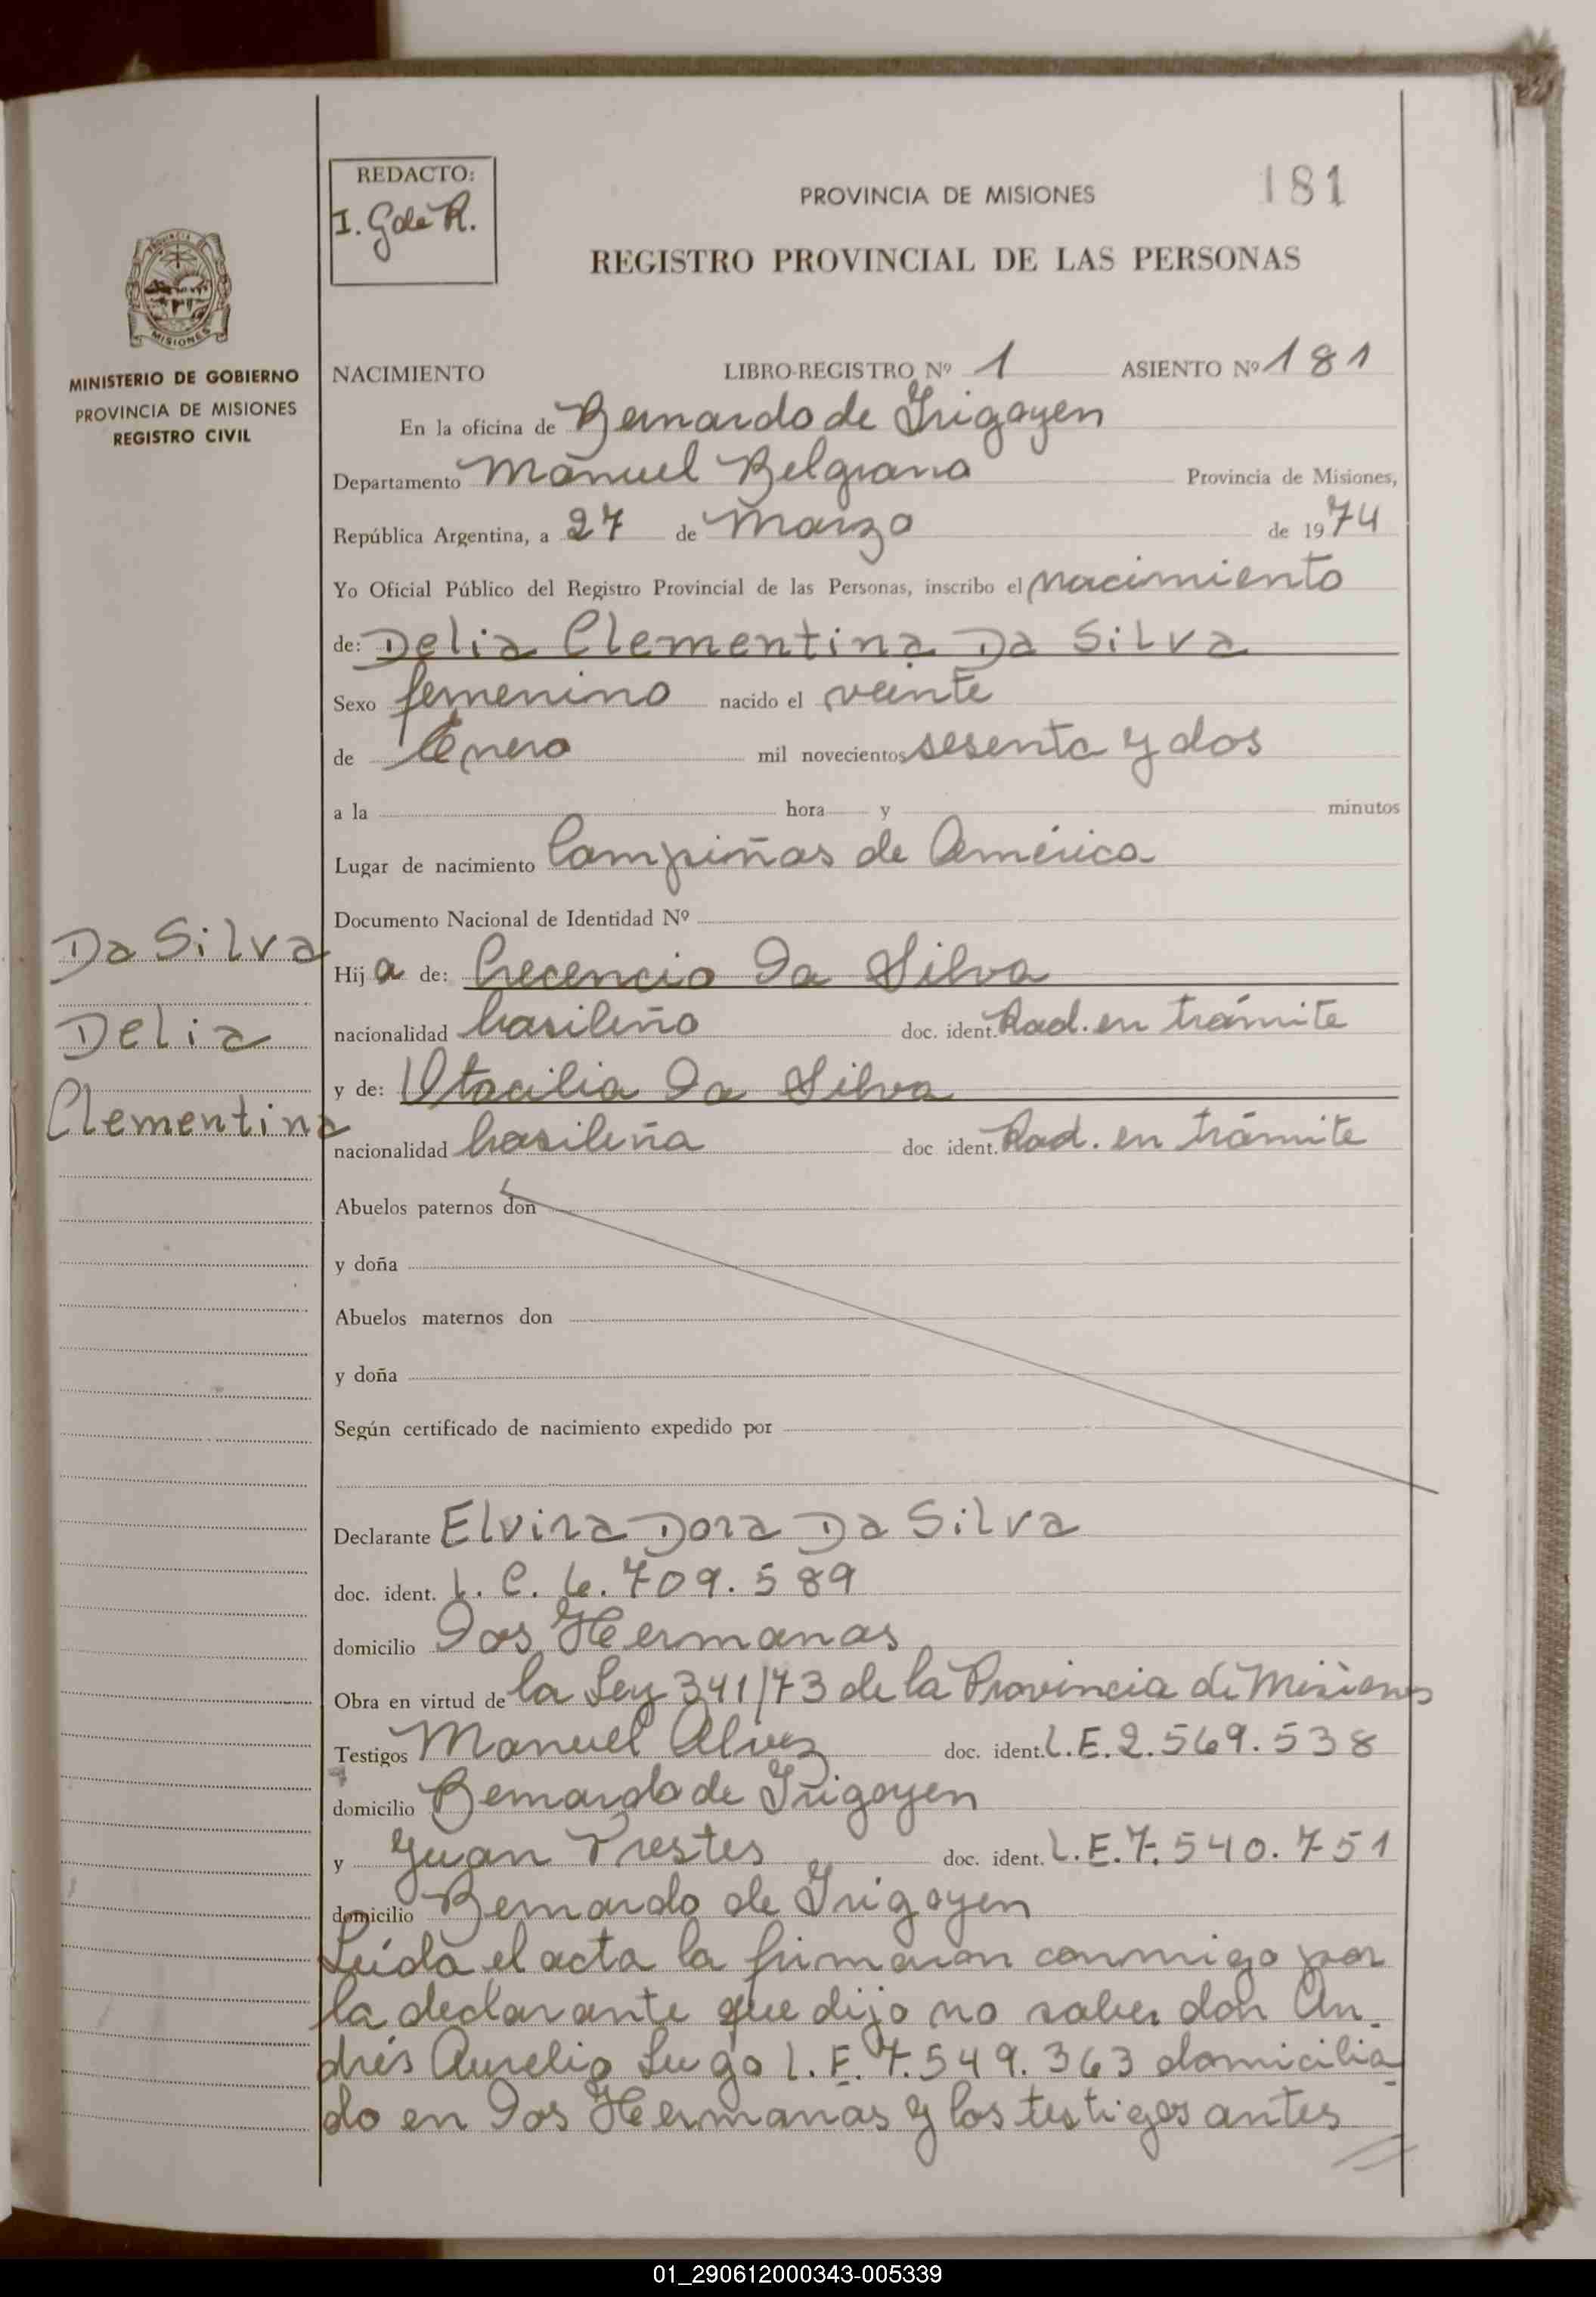 REDACTO:
I. G de R.
PROVINCIA DE MISIONES
181
REGISTRO PROVINCIAL DE LAS PERSONAS
PROVINCIA DE
MISIONES
MINISTERIO DE GOBIERNO
PROVINCIA DE MISIONES
REGISTRO CIVIL
NACIMIENTO LIBRO-REGISTRO Nº 1 ASIENTO Nº 181
En la oficina de Bernardo de Irigoyen
Departamento Manuel Belgrano Provincia de Misiones,
República Argentina, a 27 de Marzo de 1974
Yo Oficial Público del Registro Provincial de las Personas, inscribo el nacimiento
de: Delia Clementina Da Silva
Sexo femenino nacido el veinte
de Enero mil novecientos sesenta y dos
a la hora y minutos
Lugar de nacimiento Campiñas de América
Documento Nacional de Identidad Nº
Da Silva
Delia
Clementina
Hija de: Crecencio Da Silva
nacionalidad brasileño doc. ident. Rad. en trámite
y de: Otacilia Da Silva
nacionalidad brasileña doc ident. Rad. en trámite
Abuelos paternos don
y doña
Abuelos maternos don
y doña
Según certificado de nacimiento expedido por
Declarante Elvira Dora Da Silva
doc. ident. L. C. 6.709.589
domicilio Dos Hermanas
Obra en virtud de la Ley 341/73 de la Provincia de Misiones
Testigos Manuel Alvez doc. ident. L.E. 2.569.538
domicilio Bernardo de Irigoyen
y Juan Prestes doc. ident. L.E. 7.540.751
domicilio Bernardo de Irigoyen
Leída el acta la firmaron conmigo por
la declarante que dijo no saber don An-
drés Aurelio Lugo L.E. 7.549.363 domicilia-
do en Dos Hermanas y los testigos antes
01_290612000343-005339